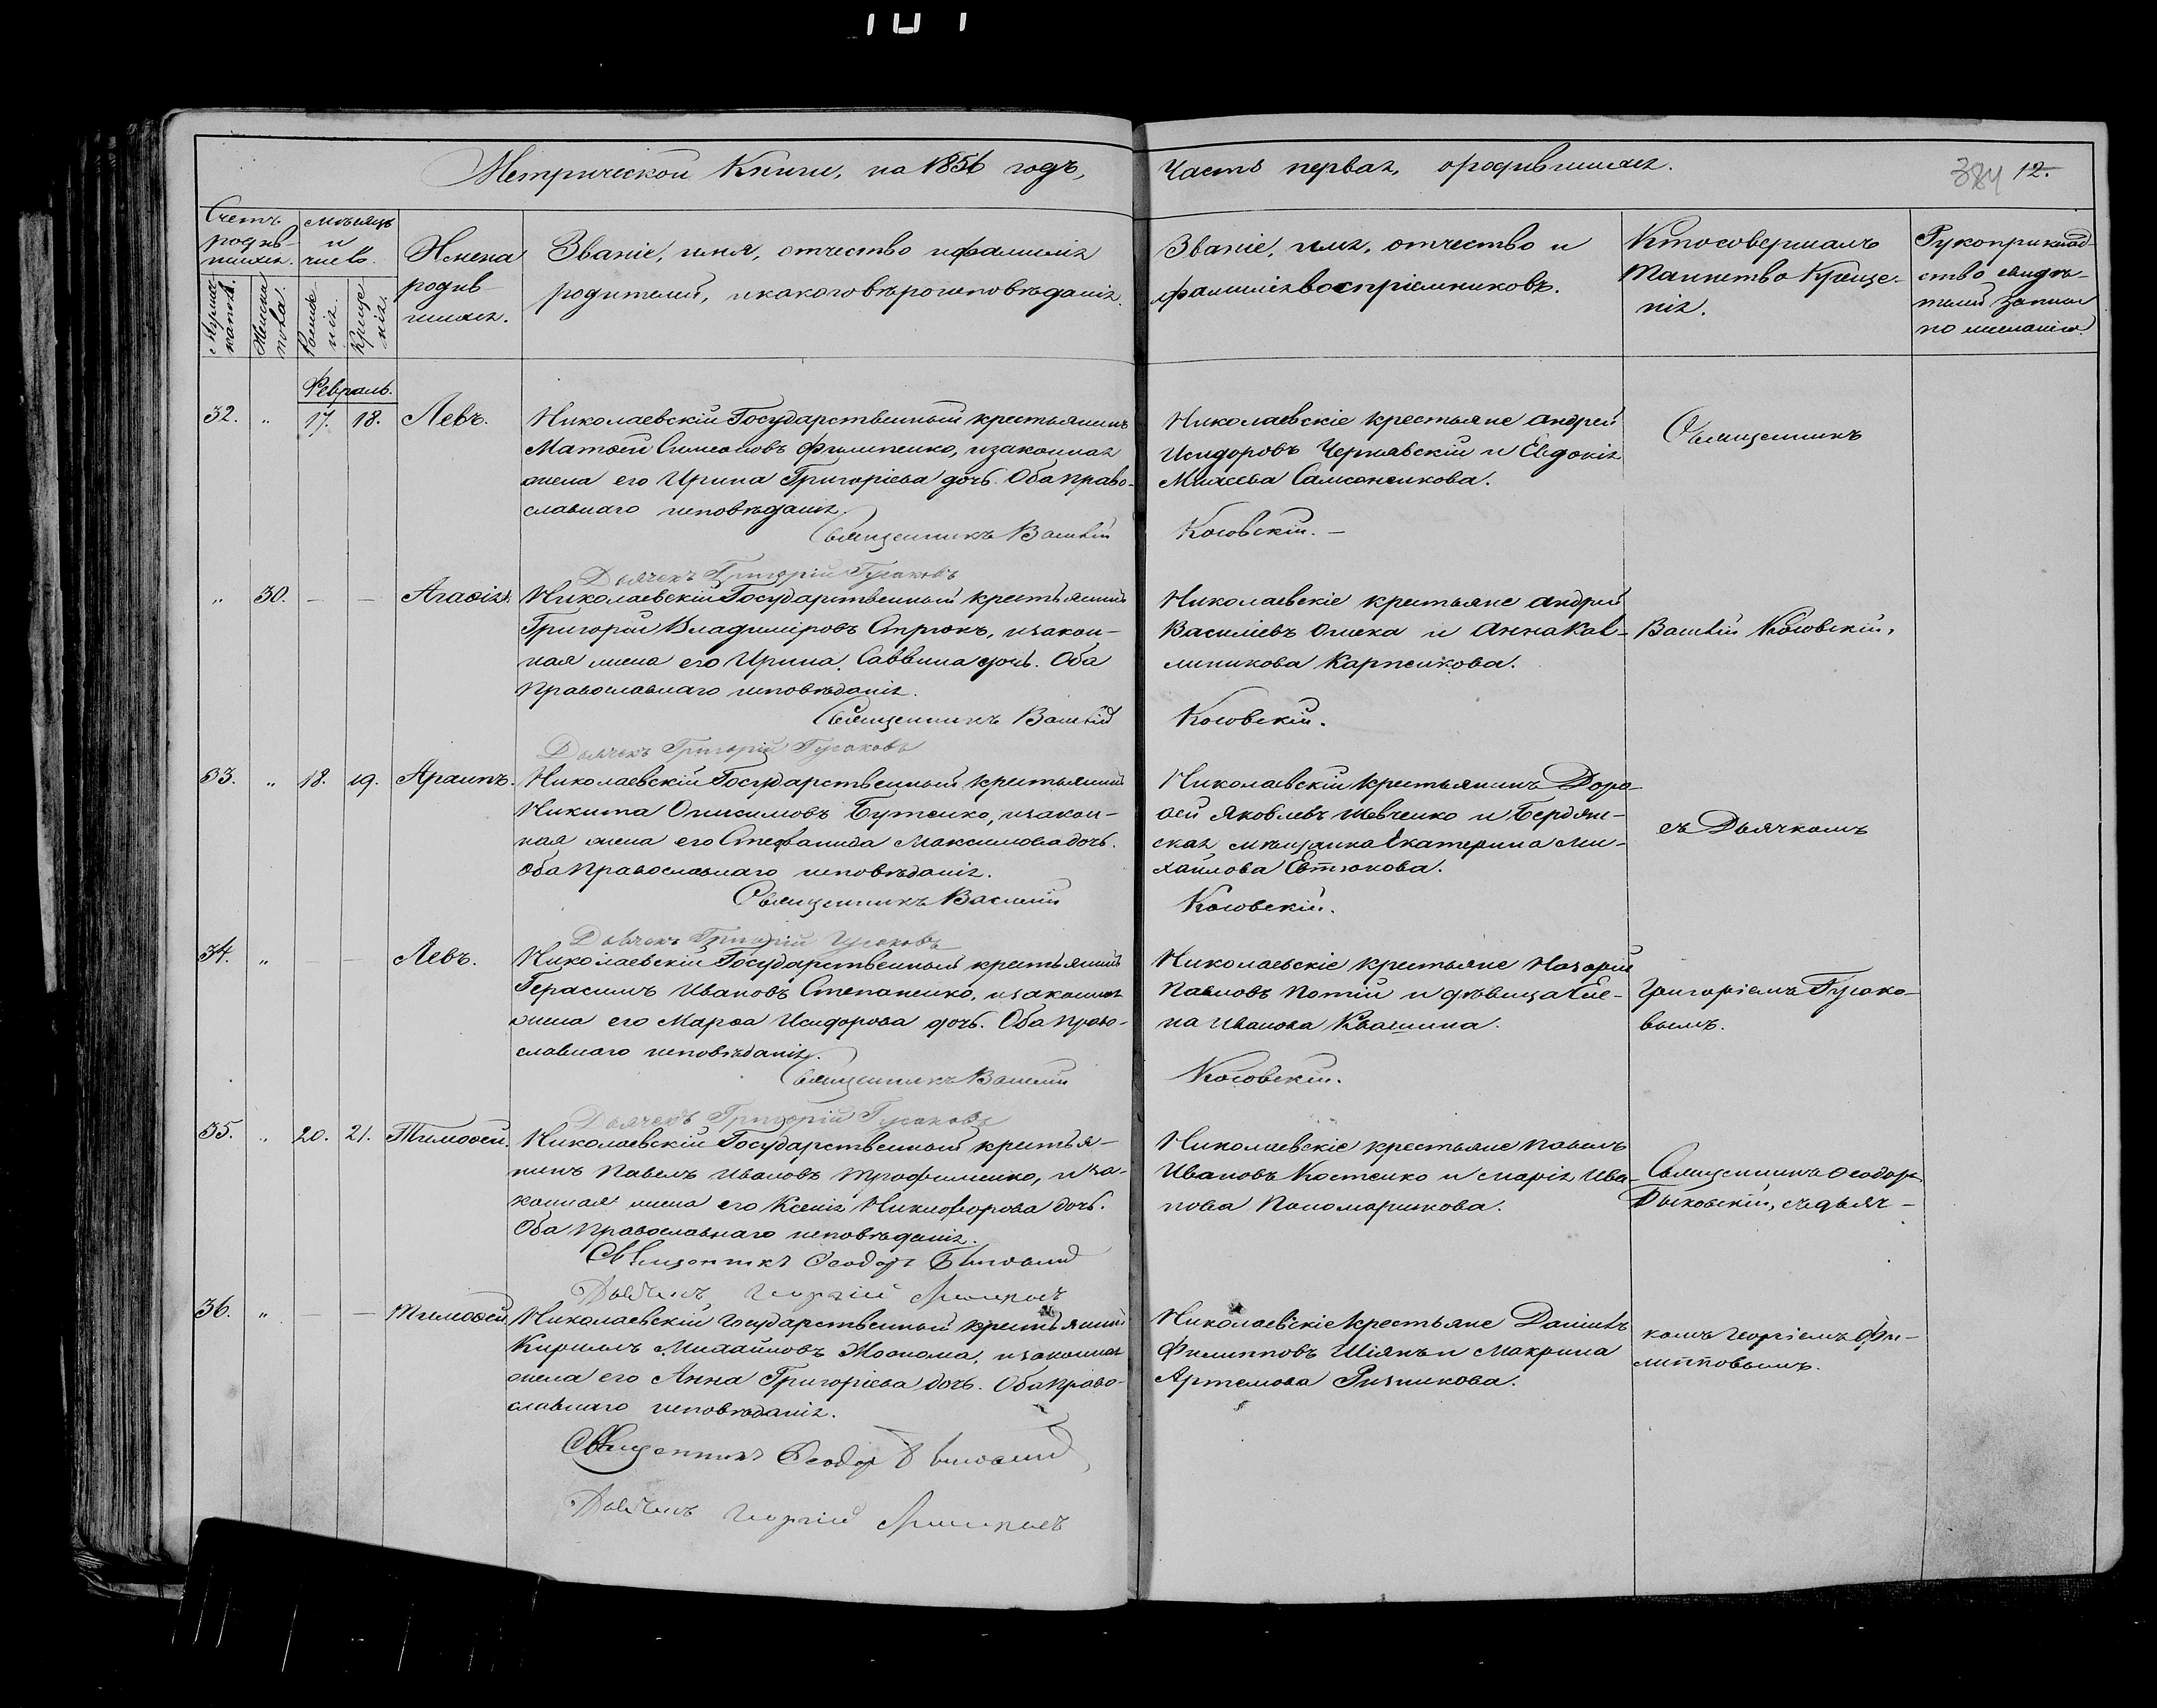 Метрической Книги, на 1856 годъ,
Часть первая, о родившихся.
384 12.
Счетъ родив-шихся.
Мужеска пола.
Женска пола.
Мѣсяцъ и число.
Рожде-нія.
Креще-нія.
Имена родив-шихся.
Званіе, имя, отчество и фамилія
родителей, и какого вѣроисповѣданія.
Званіе, имя, отчество и
фамилія воспріемниковъ.
Кто совершалъ
таинство Креще-
нія.
Рукоприклад-
ство свидѣ-
телей записи
по желанію.
Февраль.
32. " 17. 18. Левъ.
Николаевскій Государственный крестьянинъ
Матѳей Симеоновъ Филипенко, и законная
жена его Ирина Григоріева дочь. Оба право-
славнаго исповѣданія.
Священникъ Василій
Дьячекъ Григорій Гусаковъ
Николаевскіе крестьяне Андрей
Исидоровъ Чернявскій и Евдокія
Михеева Самсоненкова.
Косовскій. —
Священникъ
" 30. — — Агаѳія.
Николаевскій Государственный крестьянинъ
Григорій Владиміровъ Стрюкъ, и закон-
ная жена его Ирина Саввина дочь. Оба
Православнаго исповѣданія.
Священникъ Василій
Дьячекъ Григорій Гусаковъ
Николаевскіе крестьяне Андрей
Василіевъ Ошека и Анна Кал-
линикова Карпенкова.
Косовскій.
Василій Косовскій,
33. " 18. 19. Архипъ.
Николаевскій Государственный крестьянинъ
Никита Онисимовъ Бутенко, и закон-
ная жена его Стефанида Максимова дочь.
Оба Православнаго исповѣданія.
Священникъ Василій
Дьячекъ Григорій Гусаковъ
Николаевскій крестьянинъ Доро-
ѳей Яковлевъ Шевченко и Бердян-
ская мѣщанка Екатерина Ми-
хайлова Евтюкова.
Косовскій.
съ Дьячкомъ
34. " — — Левъ.
Николаевскій Государственный крестьянинъ
Герасимъ Ивановъ Степаненко, и законная
жена его Марѳа Исидорова дочь. Оба право-
славнаго исповѣданія.
Священникъ Василій
Дьячекъ Григорій Гусаковъ
Николаевскіе крестьяне Назарій
Павловъ Потій и дѣвица Еле-
на Иванова Квашина.
Косовскій.
Григоріемъ Гусако-
вымъ.
35. " 20. 21. Тимоѳей.
Николаевскій Государственный крестья-
нинъ Павелъ Ивановъ Трофименко, и за-
конная жена его Ксенія Никифорова дочь.
Оба Православнаго исповѣданія.
Священникъ Ѳеодоръ
Дьячекъ Георгій
Николаевскіе крестьяне Павелъ
Ивановъ Костенко и Марія Ива-
нова Пономаренкова.
Священникъ Ѳеодоръ
Быковскій, съ дьяч-
36. " — — Тимоѳей.
Николаевскій Государственный крестьянинъ
Кирилъ Михайловъ Жоолома, и законная
жена его Анна Григоріева дочь. Оба Право-
славнаго исповѣданія.
Священникъ Ѳеодоръ
Дьячекъ Георгій
Николаевскіе крестьяне Даніилъ
Филипповъ Шіянъ и Макрина
Артемова Ризникова.
комъ Георгіемъ Фи-
липповымъ.